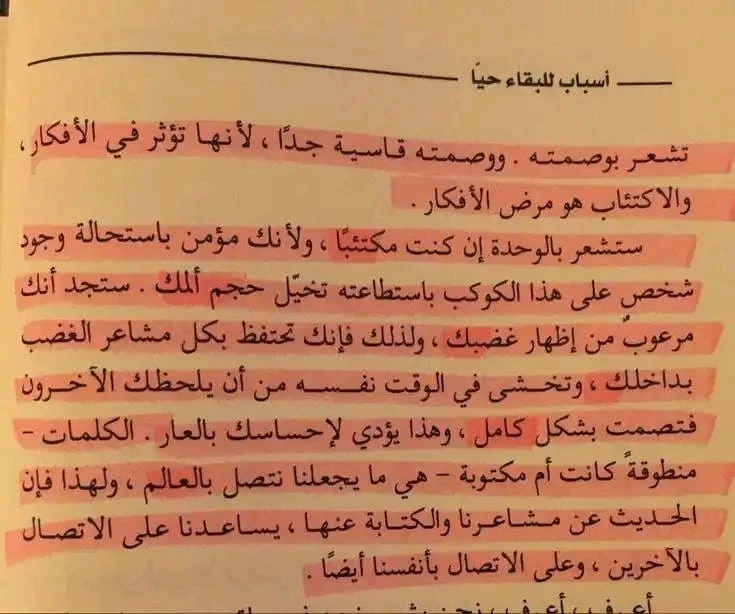 أسباب للبقاء حياً
تشعر بوصمته . ووصمته قاسية جدًا ، لأنها تؤثر في الأفكار ،
والاكتئاب هو مرض الأفكار .
ستشعر بالوحدة إن كنت مكتئبًا ، ولأنك مؤمن باستحالة وجود
شخص على هذا الكوكب باستطاعته تخيّل حجم ألمك . ستجد أنك
مرعوبٌ من إظهار غضبك ، ولذلك فإنك تحتفظ بكل مشاعر الغضب
بداخلك ، وتخشى في الوقت نفسه من أن يلحظك الآخرون
فتصمت بشكل كامل ، وهذا يؤدي لإحساسك بالعار . الكلمات –
منطوقةً كانت أم مكتوبة – هي ما يجعلنا نتصل بالعالم ، ولهذا فإن
الحديث عن مشاعرنا والكتابة عنها ، يساعدنا على الاتصال
بالآخرين ، وعلى الاتصال بأنفسنا أيضًا .
أعرف ، أعرف ، نحن